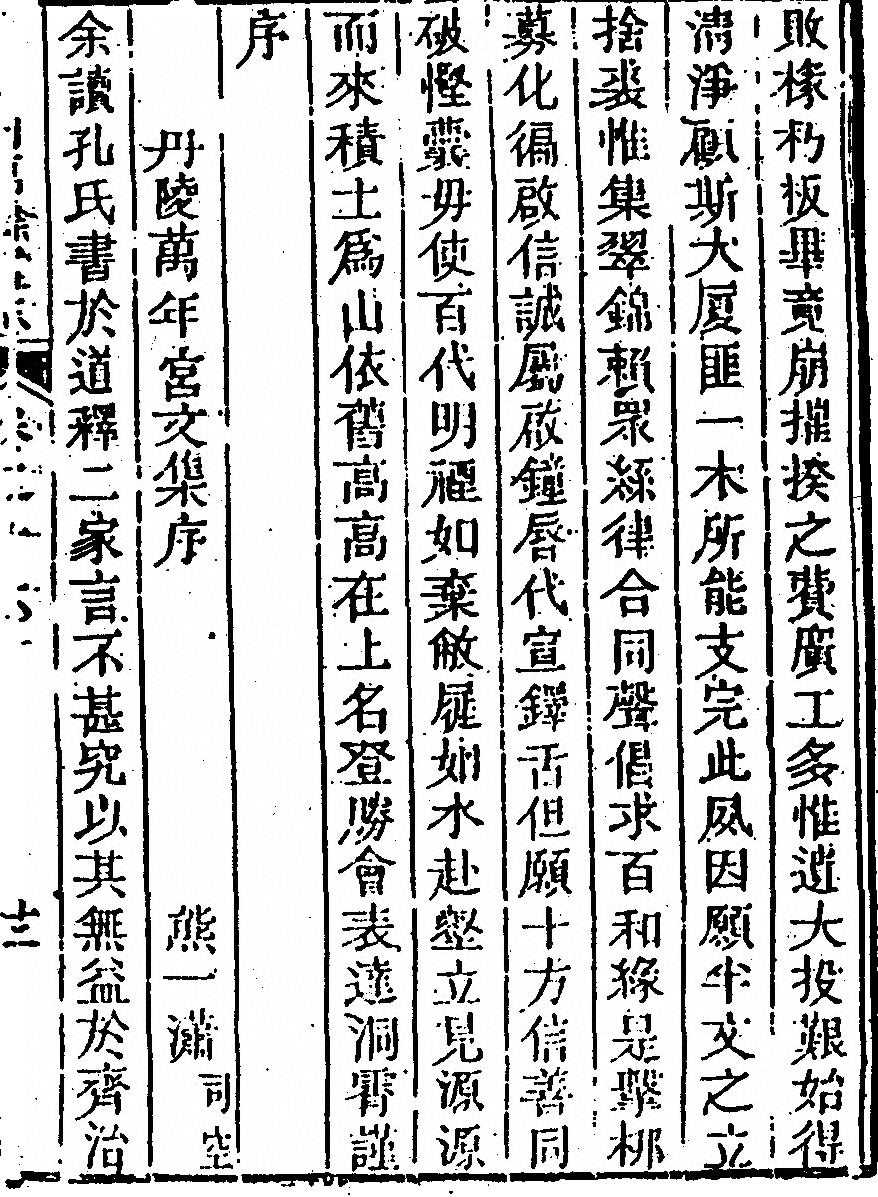 敗椽朽板畢竟崩摧揆之費廣工多惟遊大投艱始得
淸淨顧斯大厦匪一木所能支完此夙因願半文之立
捨裘惟集翠錦賴衆絲律合同聲倡求百和緣是擊梆
募化徧啟信誠屬啟鐘唇代宣鐸舌但願十方信善同
破慳囊毋使百代明禋如棄敝屣如水赴壑立見源源
而來積土爲山依舊高高在上名登勝會表達洞霄謹
序
丹陵萬年宮文集序 熊一瀟 司空
余讀孔氏書於道釋二家言不甚究以其無益於齊治
十三